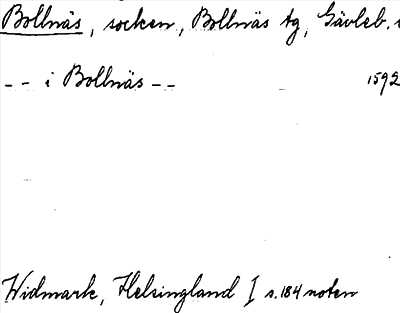 Bollnäs, socken, Bollnäs tg, Gävleb.
-- i Bollnäs -- 1592
Widmark, Helsingland I s. 184 noten